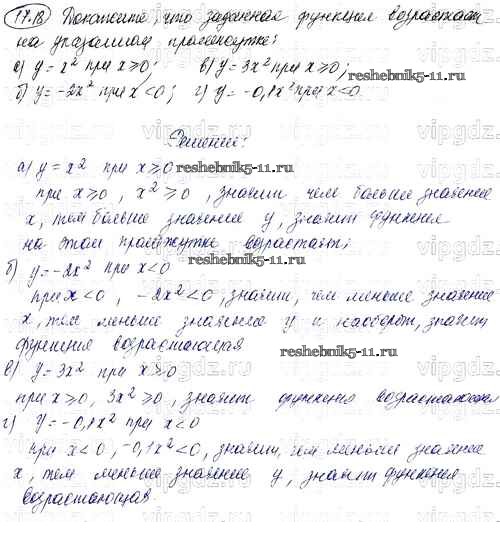 17.18 Докажите, что заданная функция возрастает
на указанном промежутке:
а) y = x² при x ≥ 0; в) y = 3x² при x ≥ 0;
б) y = -2x² при x < 0; г) y = -0,1x² при x < 0
reshebnik5-11.ru
Решение:
а) y = x² при x ≥ 0
reshebnik5-11.ru
при x ≥ 0, x² ≥ 0, значит чем больше значение
x, тем больше значение y, значит функция
на этом промежутке возрастает;
reshebnik5-11.ru
б) y = -2x² при x < 0
при x < 0, -2x² < 0, значит, чем меньше значение
x, тем меньше значение y и наоборот, значит
функция возрастающая
reshebnik5-11.ru
в) y = 3x² при x ≥ 0
при x ≥ 0, 3x² ≥ 0, значит функция возрастающая
г) y = -0,1x² при x < 0
при x < 0, -0,1x² < 0, значит, чем меньше значение
x, тем меньше значение y, значит функция
возрастающая.
vipgdz.ru